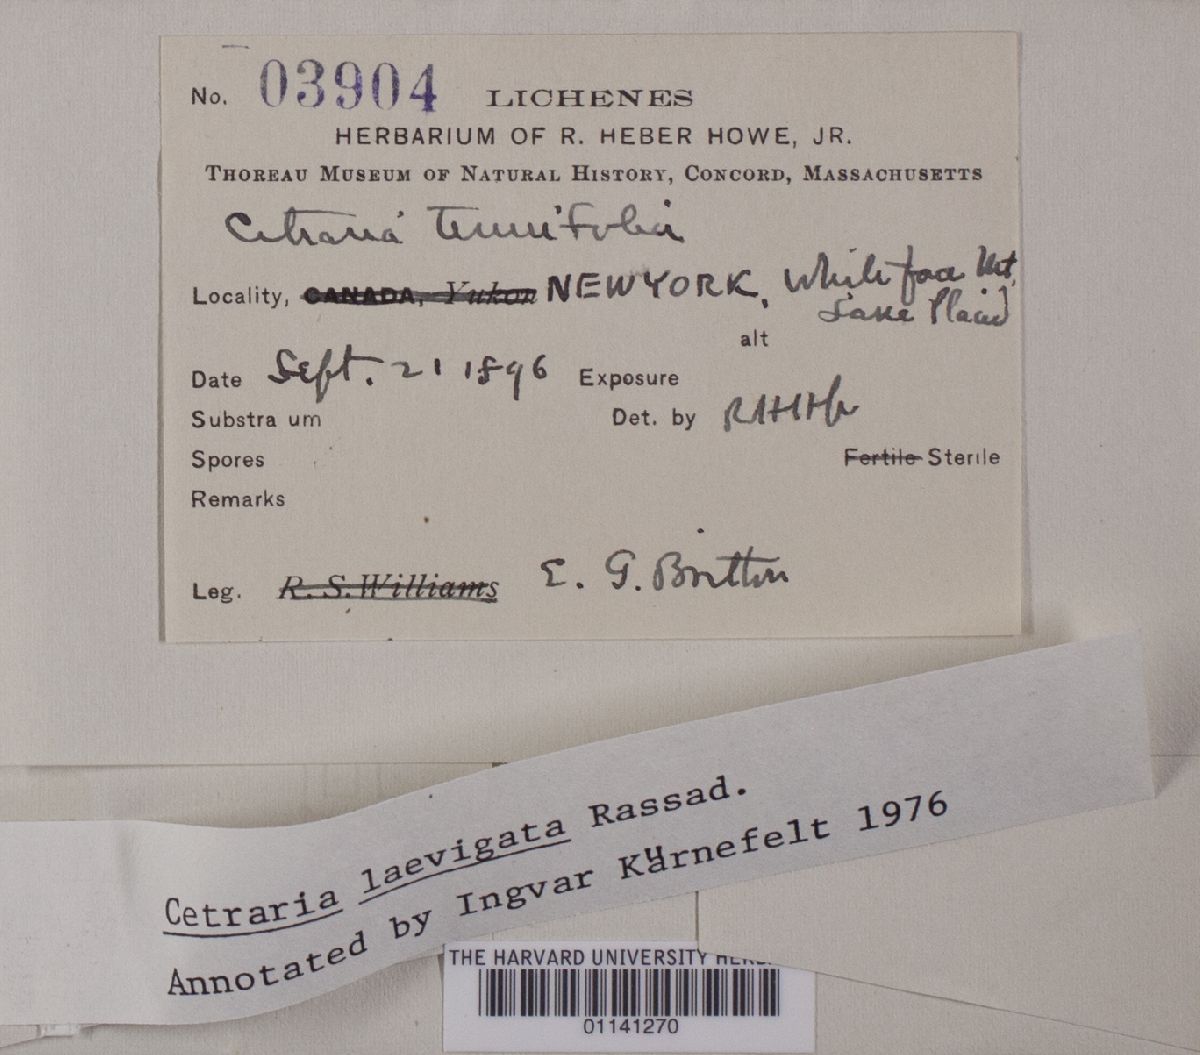 No. 03904 LICHENES
HERBARIUM OF R. HEBER HOWE, JR.
THOREAU MUSEUM OF NATURAL HISTORY, CONCORD, MASSACHUSETTS
Cetraria tenuifolia
Locality, CANADA, Yukon NEW YORK, White face Mt,
Lake Placid
alt
Date Sept. 21 1896 Exposure
Substra um Det. by RHHJr
Spores Fertile Sterile
Remarks
Leg. R. S. Williams E. G. Britton
Cetraria laevigata Rassad.
Annotated by Ingvar Kärnefelt 1976
THE HARVARD UNIVERSITY
01141270